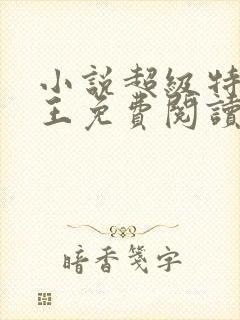 小說超級特
王免費閱讀
暗香箋字